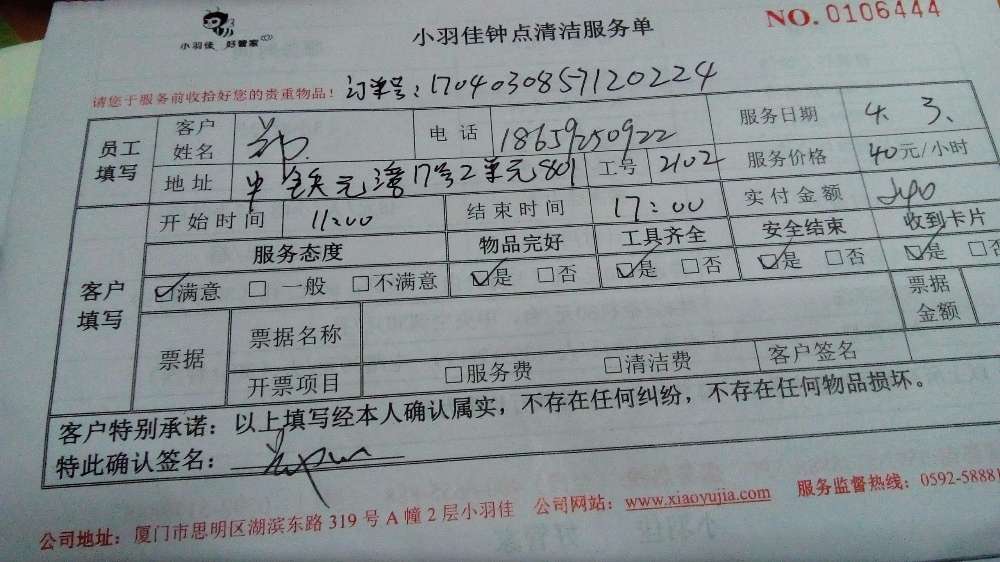 小羽佳 好管家
小羽佳钟点清洁服务单
NO. 0106444
请您于服务前收拾好您的贵重物品！ 订单号：170403085712 0224
员工填写 客户姓名 电话 18659250922 服务日期 4. 3.
地址 中铁元湾17号2单元801 工号 2102 服务价格 40元/小时
客户填写 开始时间 11:00 结束时间 17:00 实付金额 240
服务态度 物品完好 工具齐全 安全结束 收到卡片
☑满意 □一般 □不满意 ☑是 □否 ☑是 □否 ☑是 □否 ☑是 □否
票据 票据名称 票据金额
开票项目 □服务费 □清洁费 客户签名
客户特别承诺：以上填写经本人确认属实，不存在任何纠纷，不存在任何物品损坏。
特此确认签名：
公司地址：厦门市思明区湖滨东路 319 号 A 幢 2 层小羽佳 公司网站：www.xiaoyujia.com 服务监督热线：0592-58881